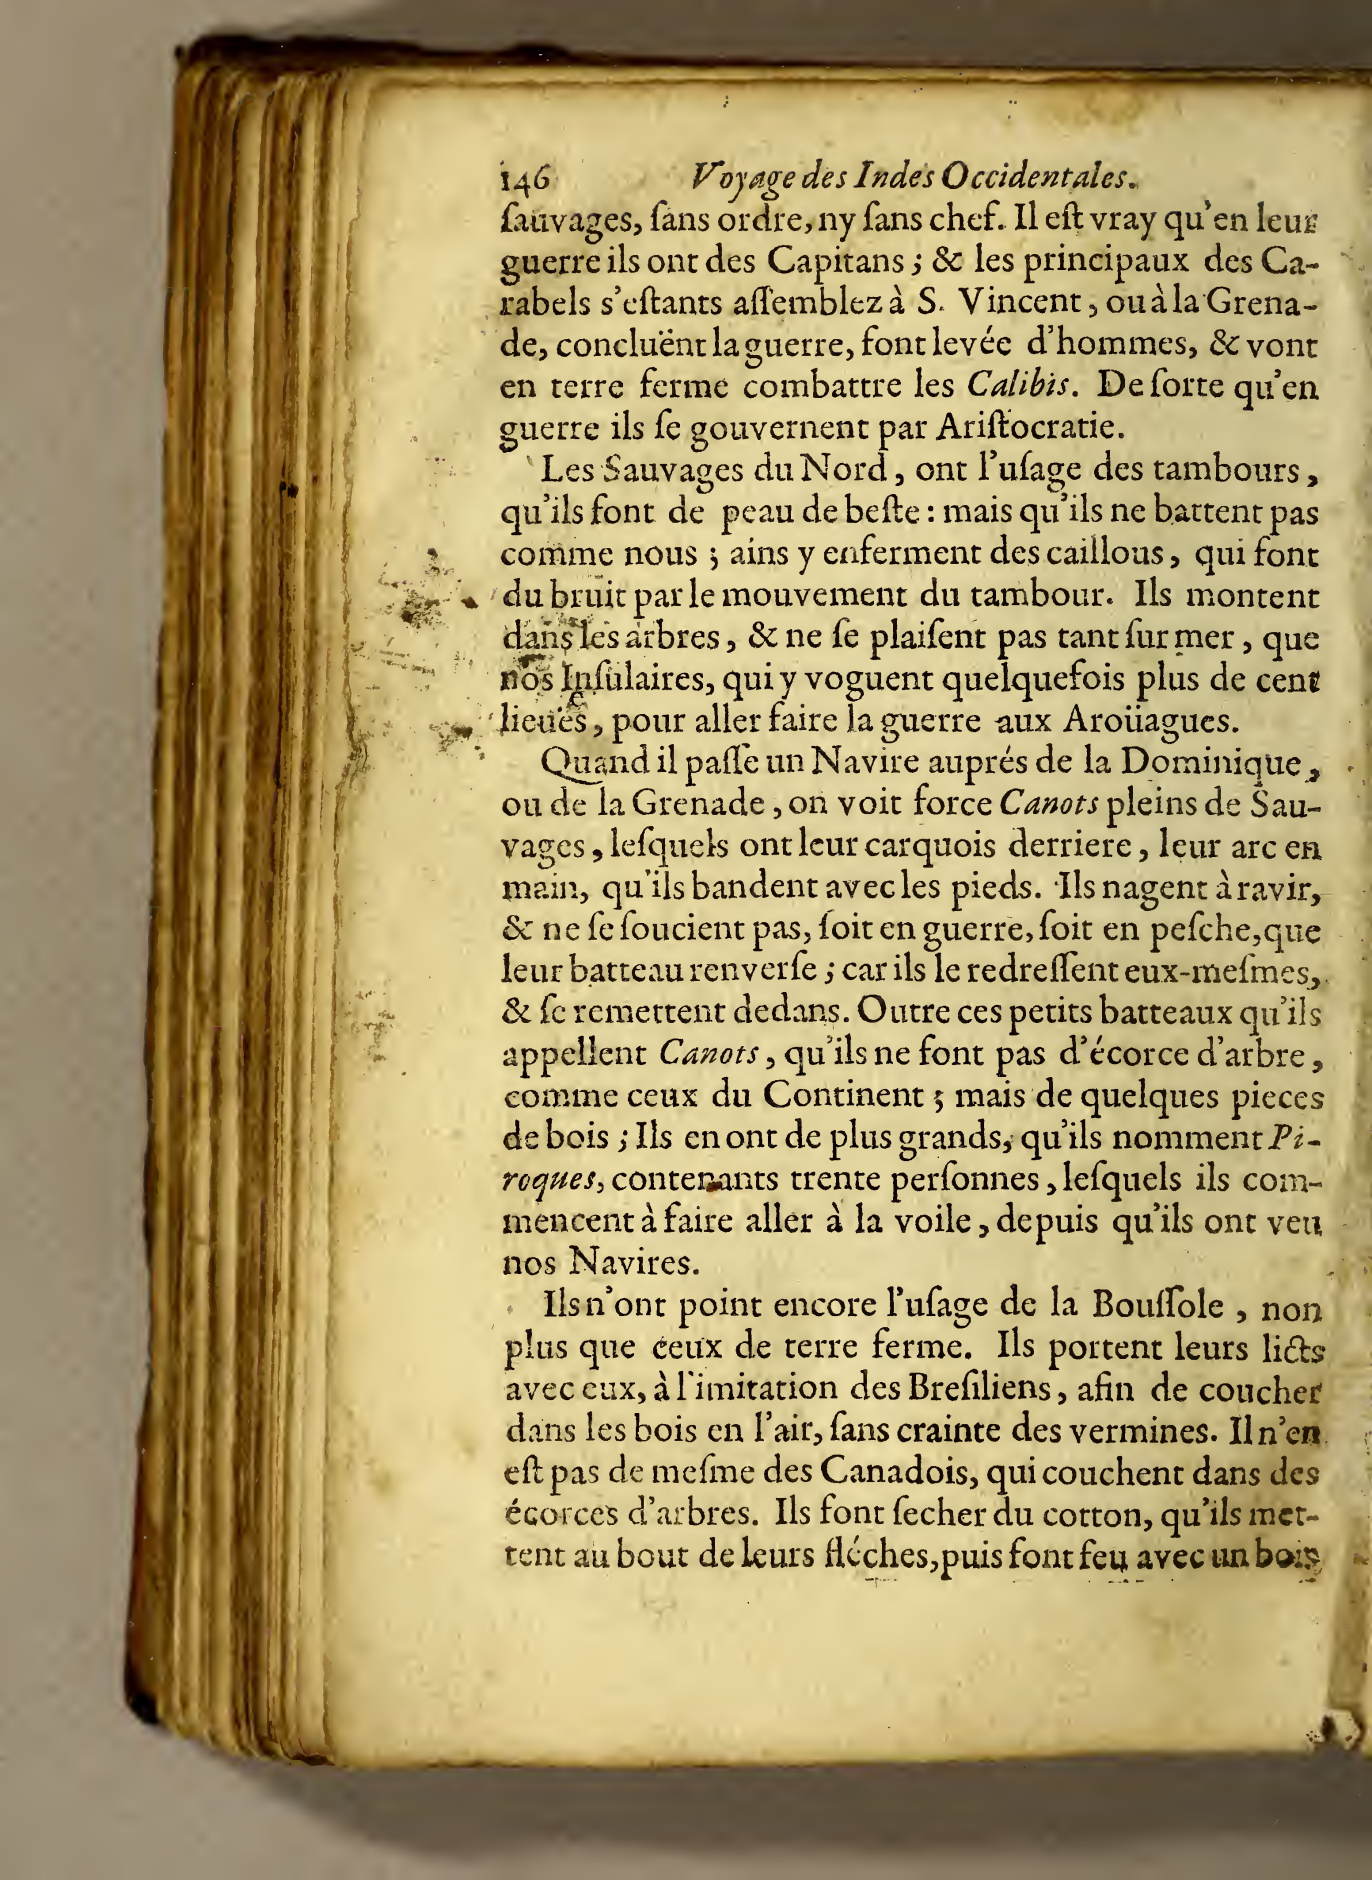 146 Voyage des Indes Occidentales.
ſauvages, ſans ordre, ny ſans chef. Il eſt vray qu'en leur
guerre ils ont des Capitans ; & les principaux des Ca-
rabels s'eſtants aſſemblez à S. Vincent, ou à la Grena-
de, concluënt la guerre, font levée d'hommes, & vont
en terre ferme combattre les Calibis. De ſorte qu'en
guerre ils ſe gouvernent par Ariſtocratie.
Les Sauvages du Nord, ont l'uſage des tambours,
qu'ils font de peau de beſte : mais qu'ils ne battent pas
comme nous ; ains y enferment des caillous, qui font
du bruit par le mouvement du tambour. Ils montent
dans les arbres, & ne ſe plaiſent pas tant ſur mer, que
nos Inſulaires, qui y voguent quelquefois plus de cent
lieuës, pour aller faire la guerre aux Aroüagues.
Quand il paſſe un Navire auprés de la Dominique,
ou de la Grenade, on voit force Canots pleins de Sau-
vages, leſquels ont leur carquois derriere, leur arc en
main, qu'ils bandent avec les pieds. Ils nagent à ravir,
& ne ſe ſoucient pas, ſoit en guerre, ſoit en peſche, que
leur batteau renverſe ; car ils le redreſſent eux-meſmes,
& ſe remettent dedans. Outre ces petits batteaux qu'ils
appellent Canots, qu'ils ne font pas d'écorce d'arbre,
comme ceux du Continent ; mais de quelques pieces
de bois ; Ils en ont de plus grands, qu'ils nomment Pi-
roques, contenants trente perſonnes, leſquels ils com-
mencent à faire aller à la voile, depuis qu'ils ont veu
nos Navires.
Ils n'ont point encore l'uſage de la Bouſſole, non
plus que ceux de terre ferme. Ils portent leurs licts
avec eux, à l'imitation des Breſiliens, afin de coucher
dans les bois en l'air, ſans crainte des vermines. Il n'en
eſt pas de meſme des Canadois, qui couchent dans des
écorces d'arbres. Ils font ſecher du cotton, qu'ils met-
tent au bout de leurs fléches, puis font feu avec un bois